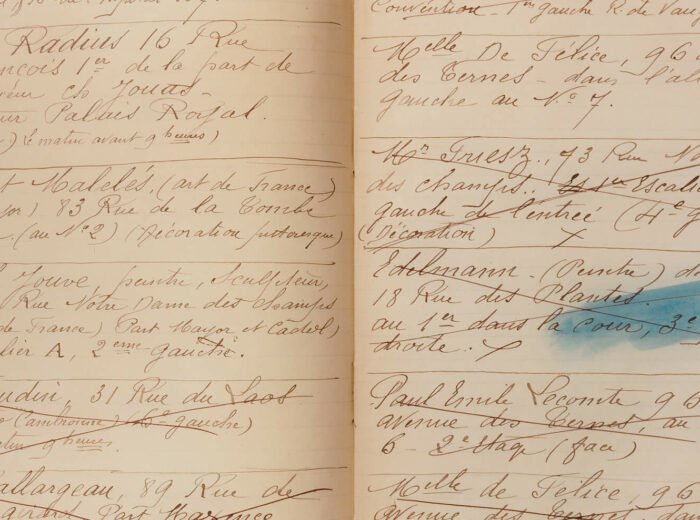 Radius 16 Rue
ançois 1er de la part de
veur ch Jouas -
ur Palais Royal.
) (le matin avant 9 heures)
t Malelés, (art de France,
or) 83 Rue de la Tombe
(au No 2) (Décoration pittoresque)
Jouve, peintre, sculpteur,
Rue Notre Dame des Champs
de France) Part Mayor et Cadel)
lier A, 2eme gauche.
udin, 31 Rue du Laos
(Cambronne) (6e gauche)
atin 9 heures.
allargeau, 89 Rue de
Part
Convention - 1er gauche R. de Vau
Melle De Félice, 96 a
des Ternes - dans l'a
gauche au No 7.
Mr Friesz., 73 Rue N
des champs.. 1er Escall
gauche de l'entrée (4e g
(Décoration) x
Edelmann - (Peintre) d
18 Rue des Plantes.
au 1er dans la cour, 3e
droite. x
Paul Emile Lecomte 96
avenue des Ternes, au
6 - 2e étage (face)
Melle de Félice, 96
avenue des Ternes,